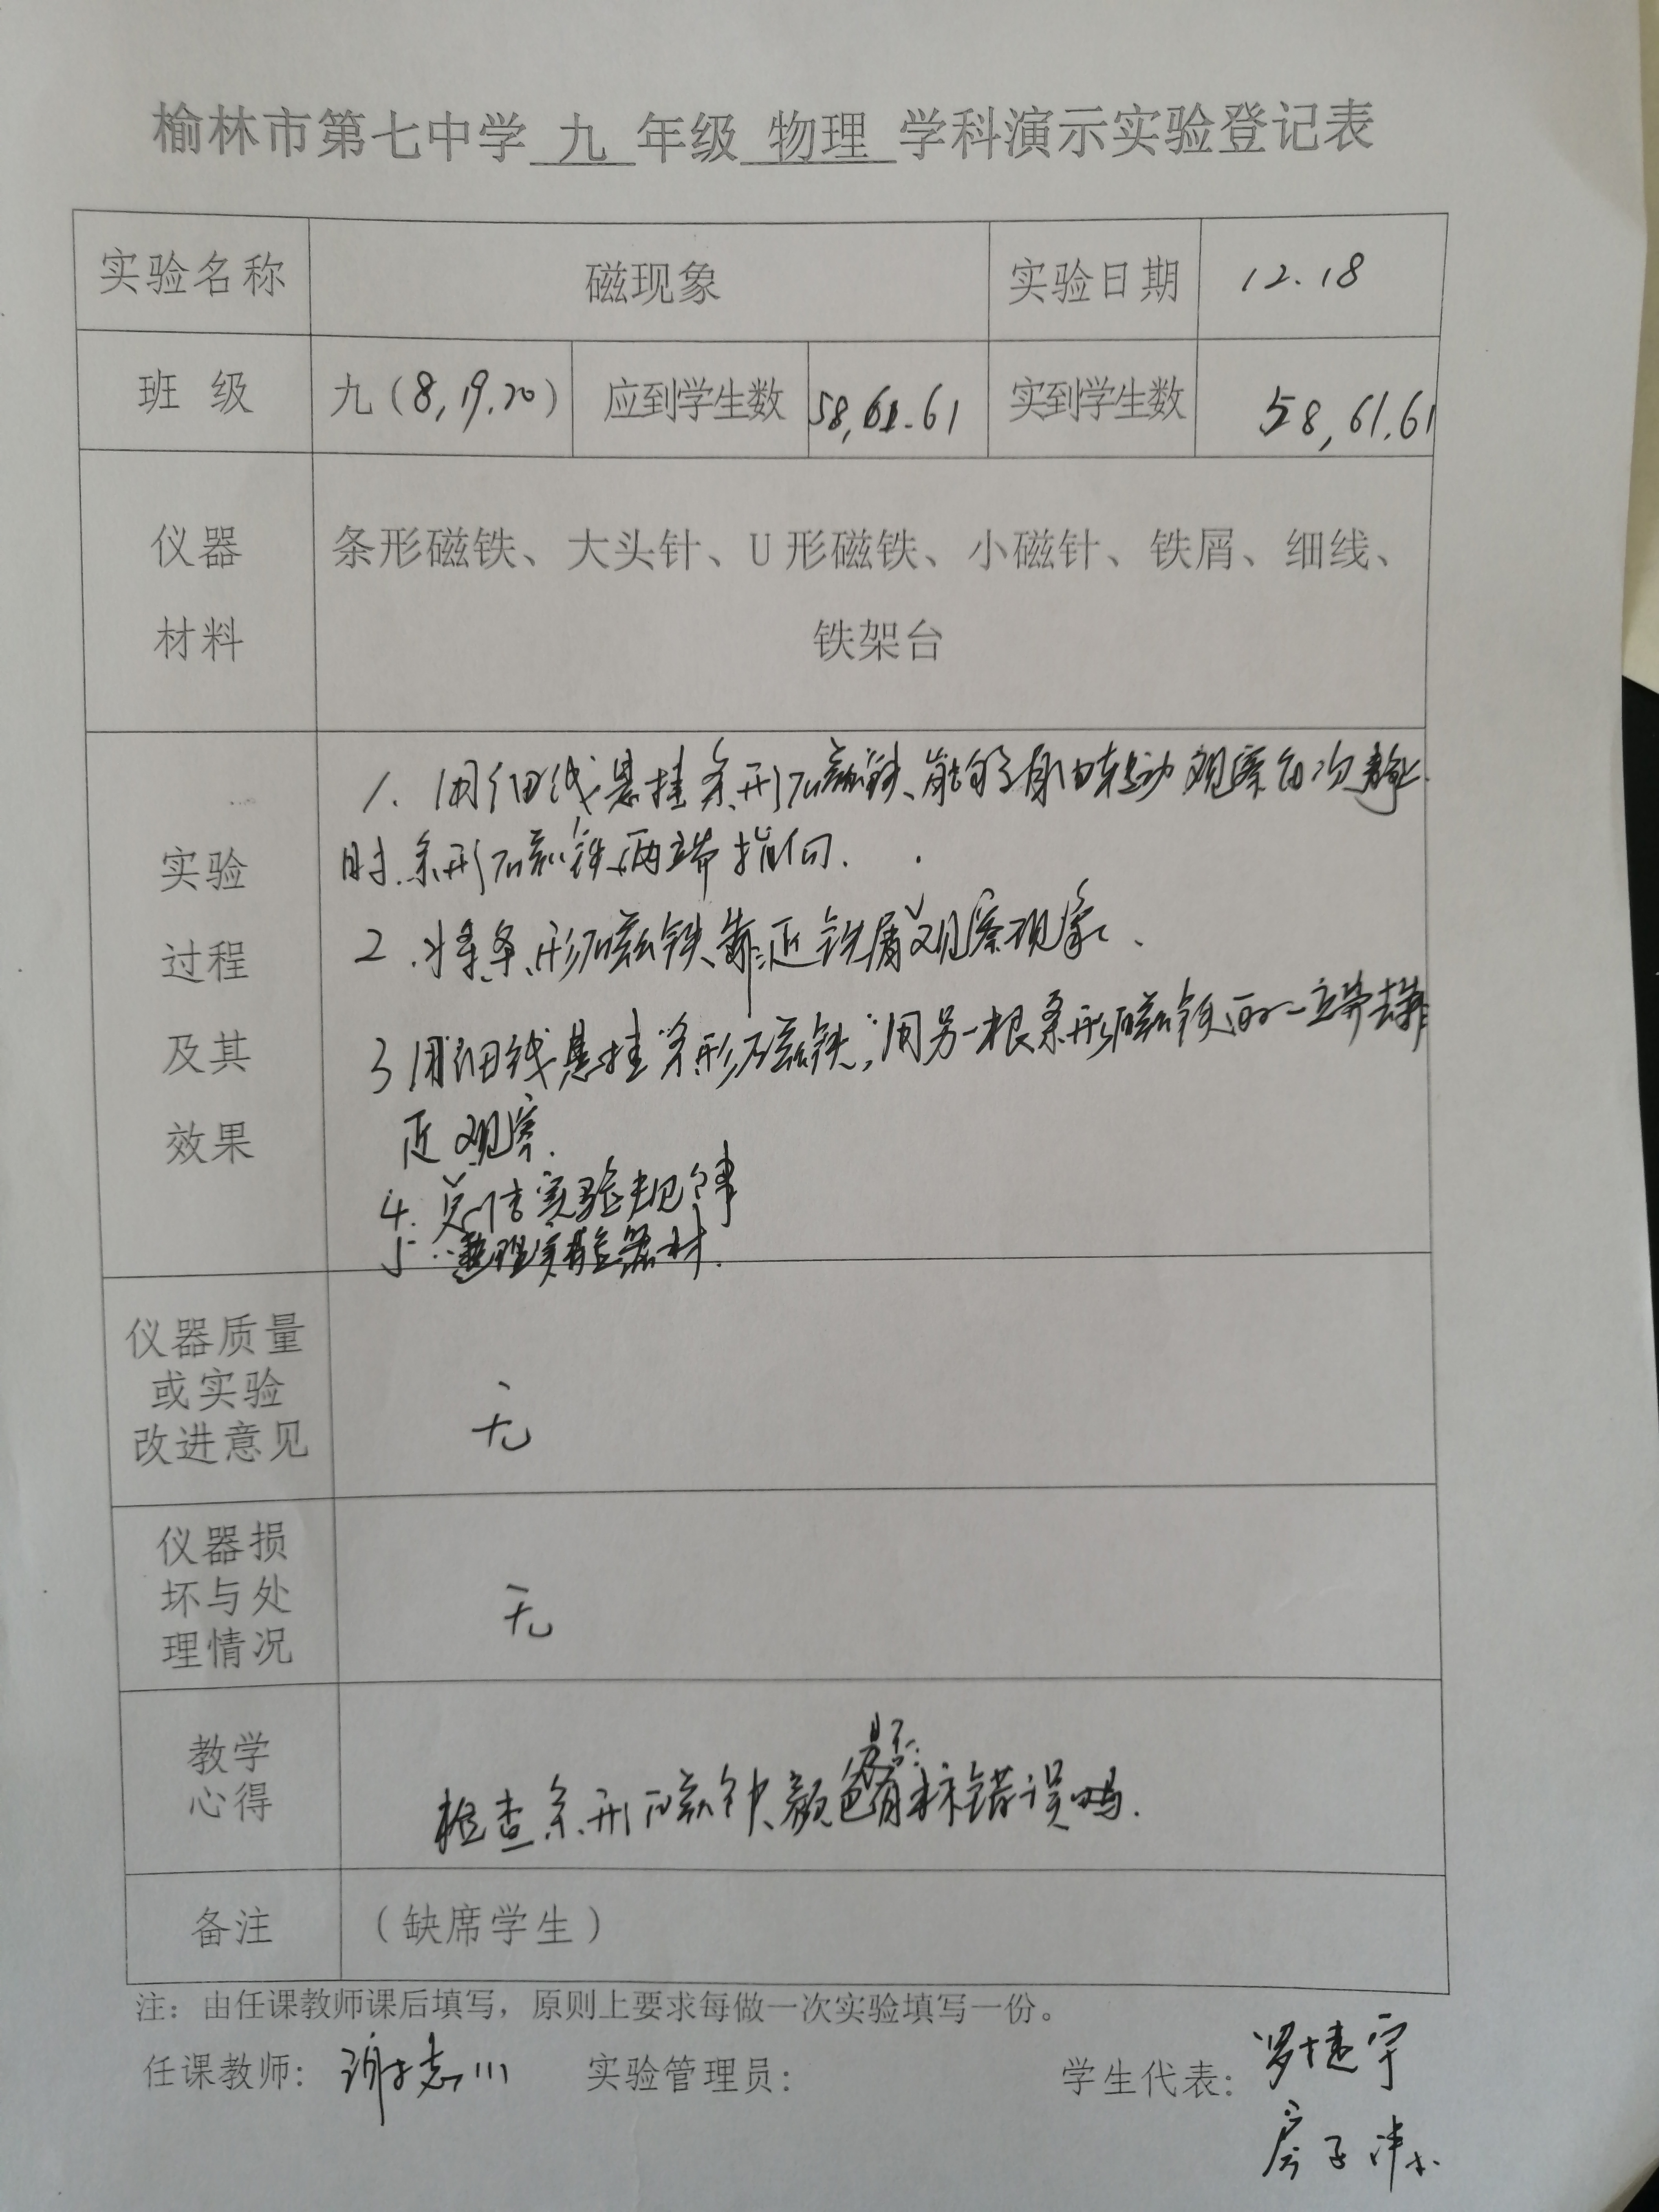 榆林市第七中学 九 年级 物理 学科演示实验登记表
实验名称 磁现象 实验日期 12.18
班 级 九(8,19.20) 应到学生数 58,61.61 实到学生数 58,61.61
仪器
材料
条形磁铁、大头针、U形磁铁、小磁针、铁屑、细线、
铁架台
实验
过程
及其
效果
1. 用细线悬挂条形磁铁、能够自由转动观察每次静止
时.条形磁铁两端指向.
2.将条形磁铁靠近铁屑观察现象、
3用细线悬挂条形磁铁,用另一根条形磁铁的一端去靠
近观察.
4.总结实验规律
5.整理实验器材.
仪器质量
或实验
改进意见
无
仪器损
坏与处
理情况
无
教学
心得
检查条形磁铁颜色是否有标错误吗.
备注 (缺席学生)
注:由任课教师课后填写,原则上要求每做一次实验填写一份。
任课教师:谢志川 实验管理员: 学生代表:罗捷宇
房子